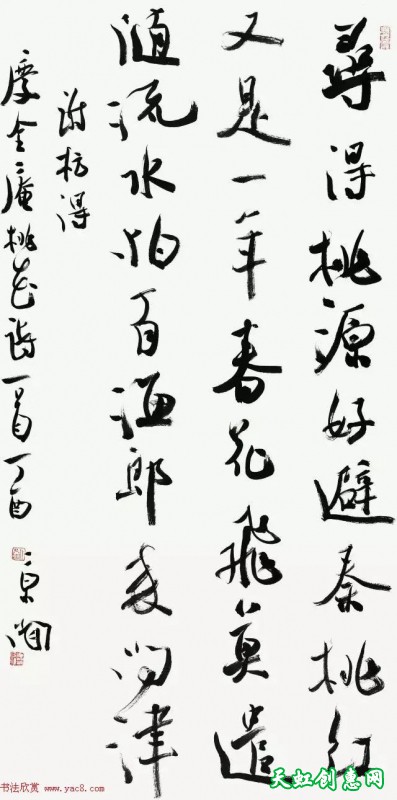 尋得桃源好避秦桃紅
又是一年春花飛莫遣
隨流水怕有漁郎來問津
謝枋得
慶全庵桃花詩一首丁酉
书法欣赏 www.yac8.com
天虹创意网